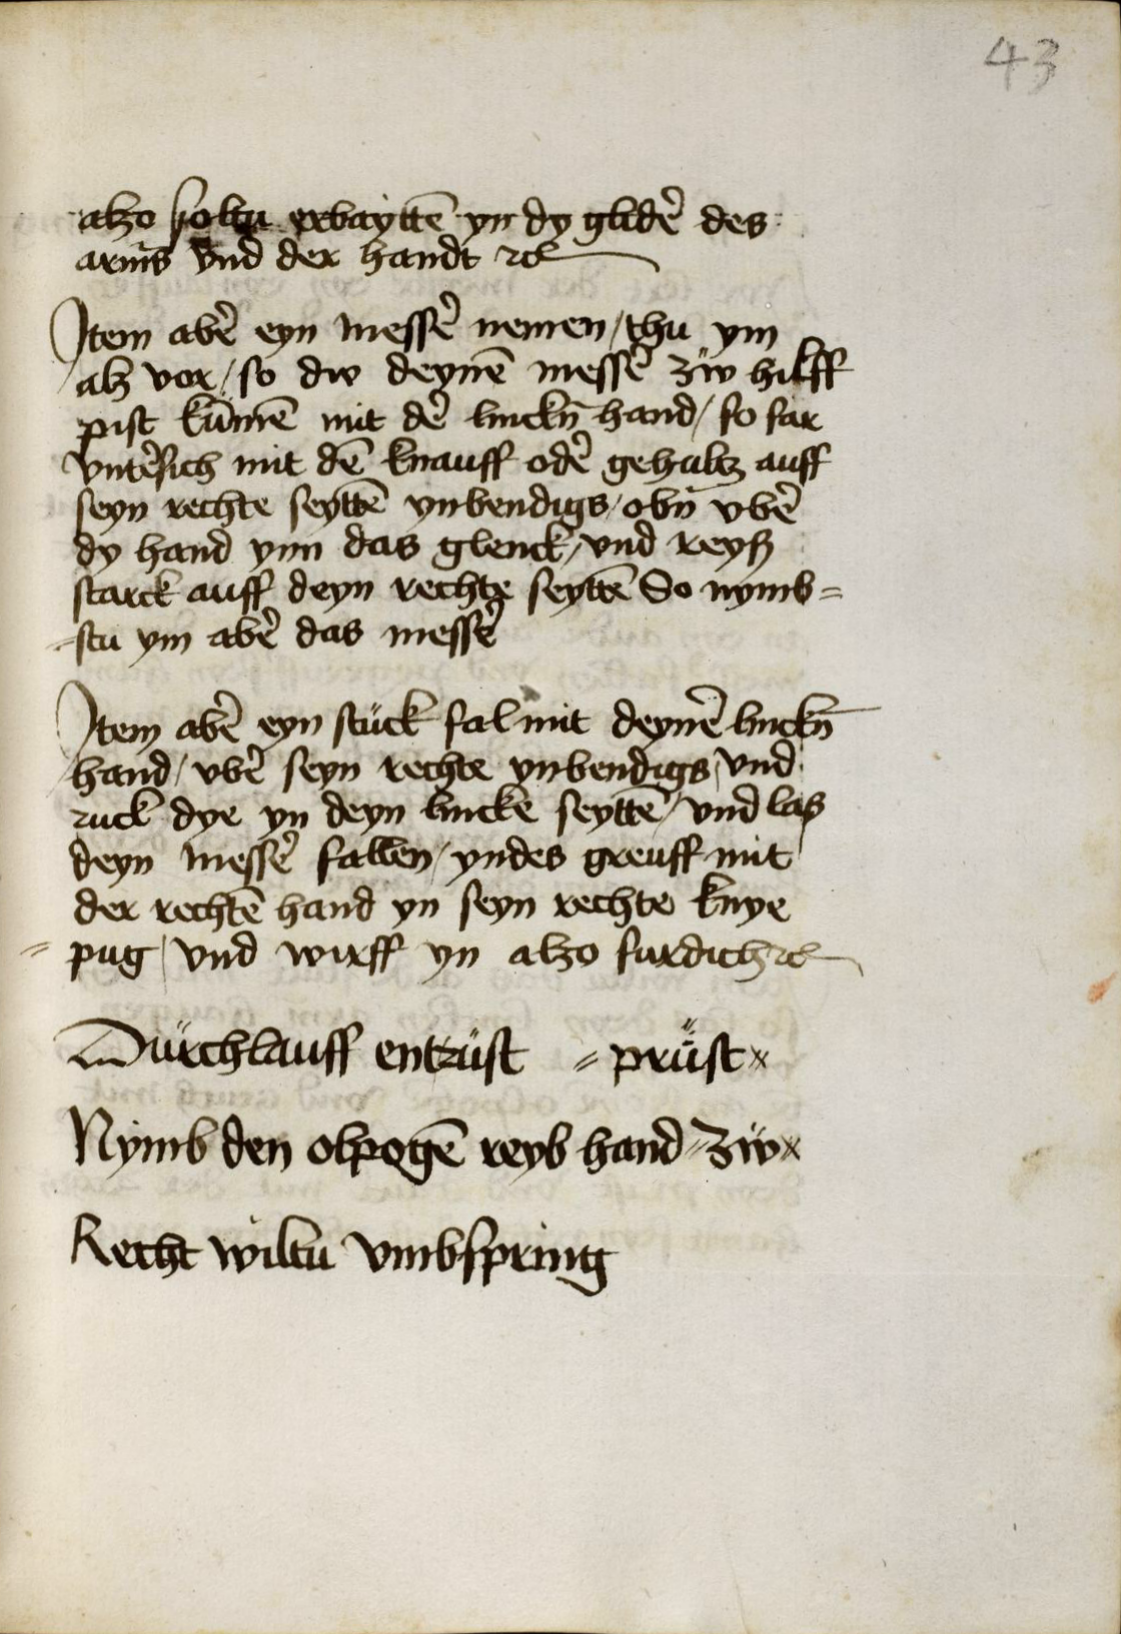 43
alzo soltu erbayttē yn dy glidẻ des
arms vnd der handt ꝛc
Item abẻ eyn messẻ nemen / thu ym
alz vor / so dw deynē messẻ zẅ hilff
pist kūmē mit dẻ linckn̄ hand / so far
vntẻsich mit dē knauff odẻ gehultz auff
seyn rechte seyttē ynbendigs / obn̄ vbẻ
dy hand ynn das glenck / vnd reyß
starck auff deyn rechte seyttē So nymb=
=stu ym abẻ das messẻ
Item abẻ eyn stück fal mit deynē linckn̄
hand / vbẻ seyn rechte ynbendigs / vnd
ruck dye yn deyn lincke seyttē / vnd las
deyn messẻ fallen / yndes greuff mit
der rechtē hand yn seyn rechte knye
=pug / vnd wirff yn alzo fur dich ꝛc
Dürchlauff entrüst = prüst
Nymb den olpogē reyb hand = zẅ
Recht wiltu vmbspring